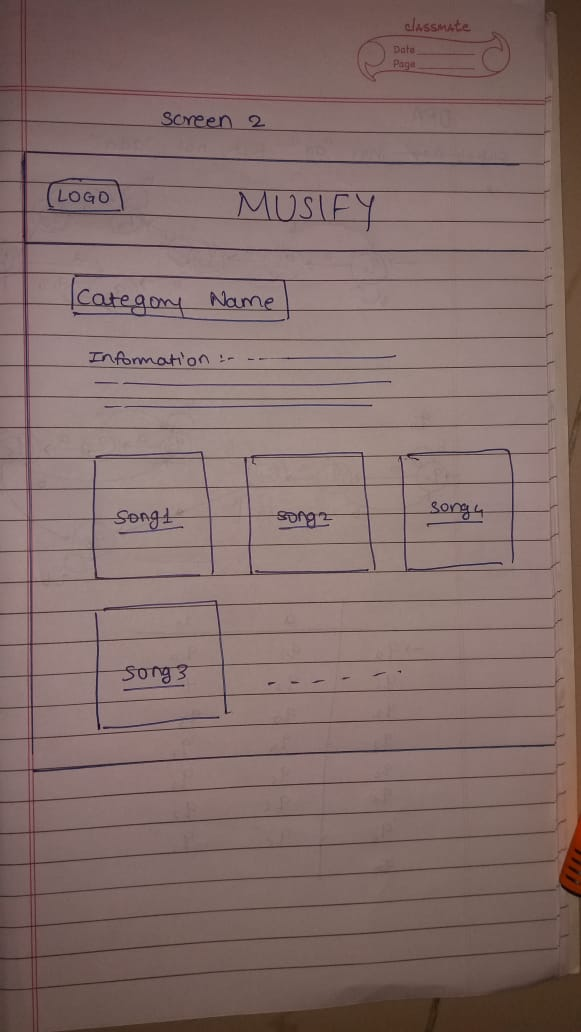 classmate
Date
Page
Screen 2
LOGO
MUSIFY
Category Name
Information :-
Song1
Song2
Song4
Song3